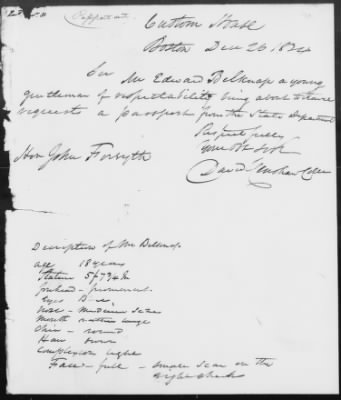 Custom House
Boston Dec 26 1834
Sir Mr Edward Belknap a young
gentleman of respectability being about to leave
requests a passport from the State Department
Respectfully
Your Obt Sevt
Hon John Forsyth
David Henshaw Coller
Description of Mr Belknap
age 18 years
Stature 5 f 7 3/4 In
forehead - prominent
Eyes Blue
nose - medium size
Mouth rather large
Chin - round
Hair brown
Complexion light
Face - full - small scar on the
right cheek